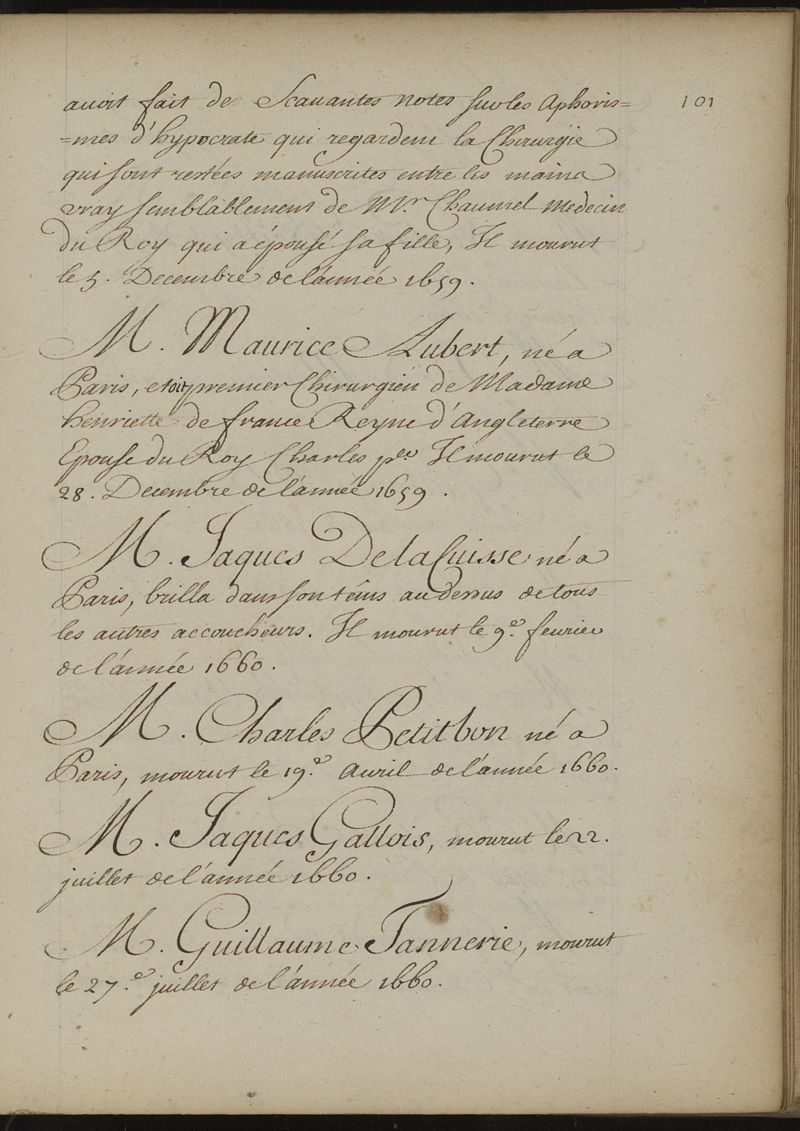 avoit fait de Scauantes notes sur les Aphoris= 101
=mes d'hypocrate qui regardent la Chirurgie
qui sont restées manuscrites entre les mains
vray semblablement de Mr. Chaumel Medecin
du Roy qui a épousé sa fille, Il mourut
le 5. Decembre de l'année 1659.
M. Maurice Aubert, né a
Paris, etoit premier Chirurgien de Madame
henriette de france Reyne d'Angleterre
Epouse du Roy Charles per Il mourut le
28. Decembre de l'année 1659.
M. Jaques De la Cuisse né a
Paris, brilla dans son tems au dessus de tous
les autres accoucheurs. Il mourut le 9e. feurier
de l'année 1660.
M. Charles Petitbon né a
Paris, mourut le 19e. Avril de l'année 1660.
M. Jaques Gallois, mourut le 22.
juillet de l'année 1660.
M. Guillaume Tannerie, mourut
le 27.e juillet de l'année 1660.